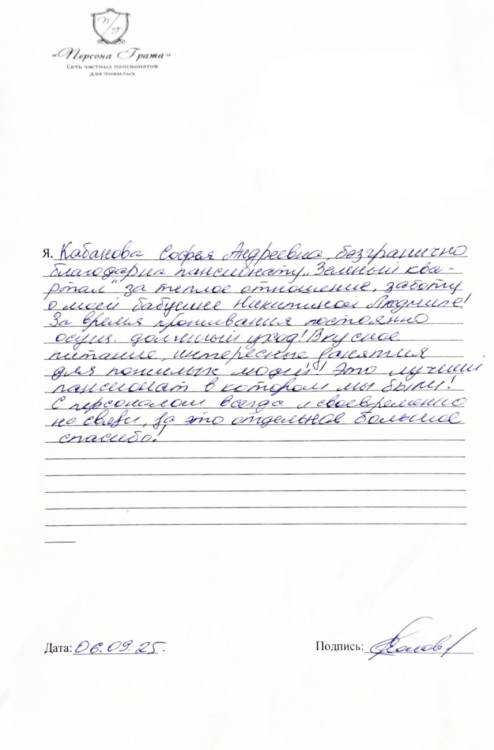 П Г
«Персона Грата»
Сеть частных пансионатов
для пожилых
Я, Кабанова Софья Андреевна, безгранично
благодарна пансионату "Земный ква-
ртал" за теплое отношение, заботу
о моей бабушке Никитиной Людмиле!
За время проживания постоянно
осущ. должный уход! Вкусное
питание, интересные занятия
для пожилых людей! Это лучший
пансионат в котором мы были!
С персоналом всегда и своевременно
на связи, за это отдельное большое
спасибо!
Дата: 06.09.25.
Подпись: